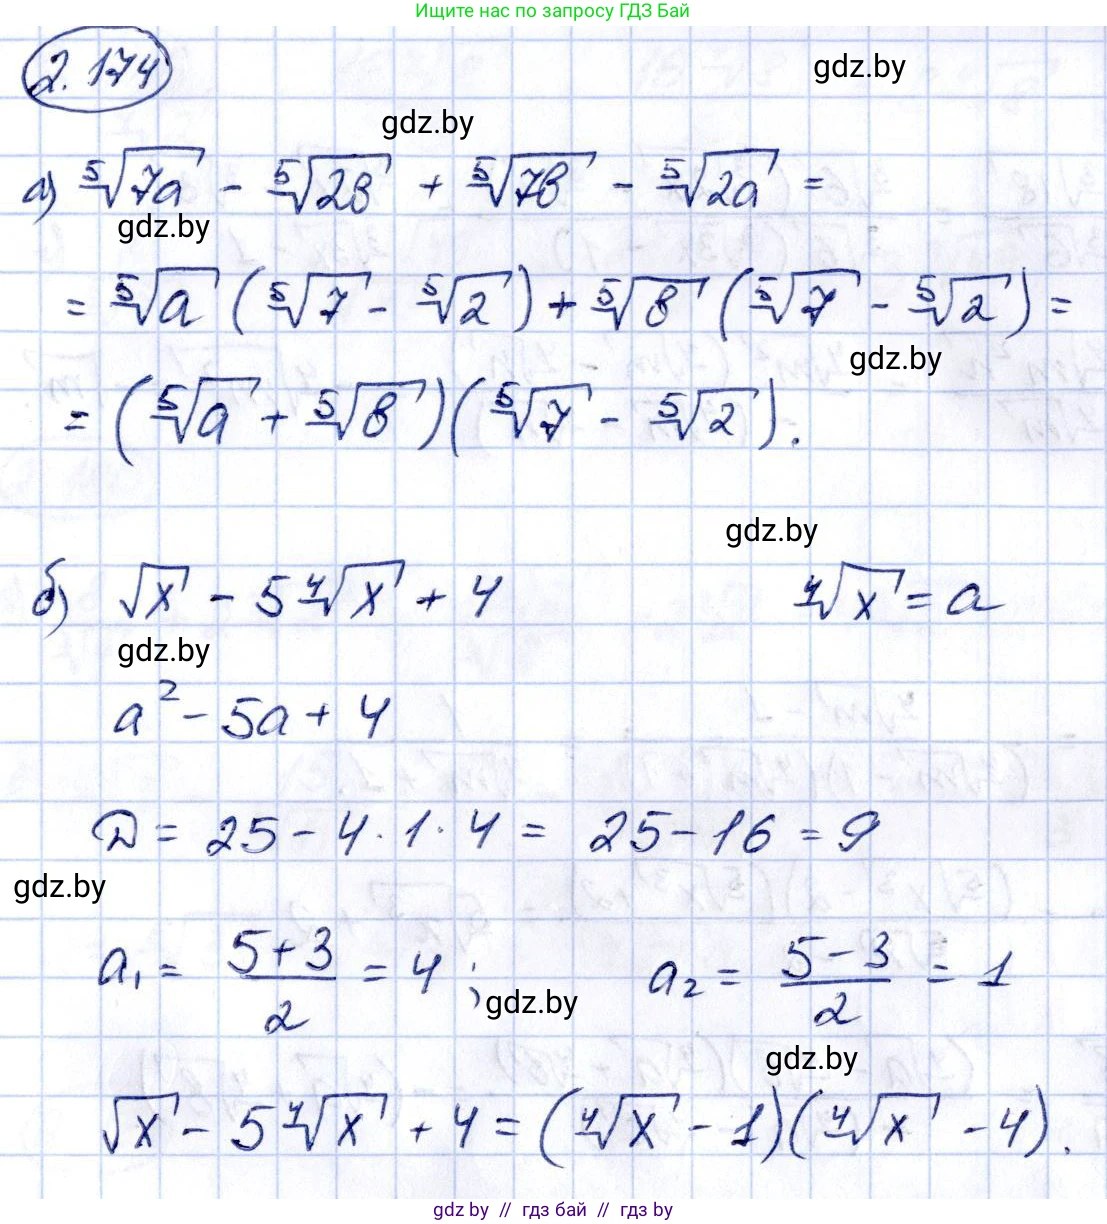 Ищите нас по запросу ГДЗ Бай
2.174
gdz.by
gdz.by
а) ⁵√7a - ⁵√2b + ⁵√7b - ⁵√2a =
gdz.by
= ⁵√a (⁵√7 - ⁵√2) + ⁵√b (⁵√7 - ⁵√2) =
gdz.by
= (⁵√a + ⁵√b)(⁵√7 - ⁵√2).
gdz.by
б) √x - 5 ⁴√x + 4 ⁴√x = a
gdz.by
a² - 5a + 4
D = 25 - 4 · 1 · 4 = 25 - 16 = 9
gdz.by
a₁ = (5+3)/2 = 4 ; a₂ = (5-3)/2 = 1
gdz.by
gdz.by
√x - 5 ⁴√x + 4 = (⁴√x - 1)(⁴√x - 4).
gdz.by // гдз бай // гдз by